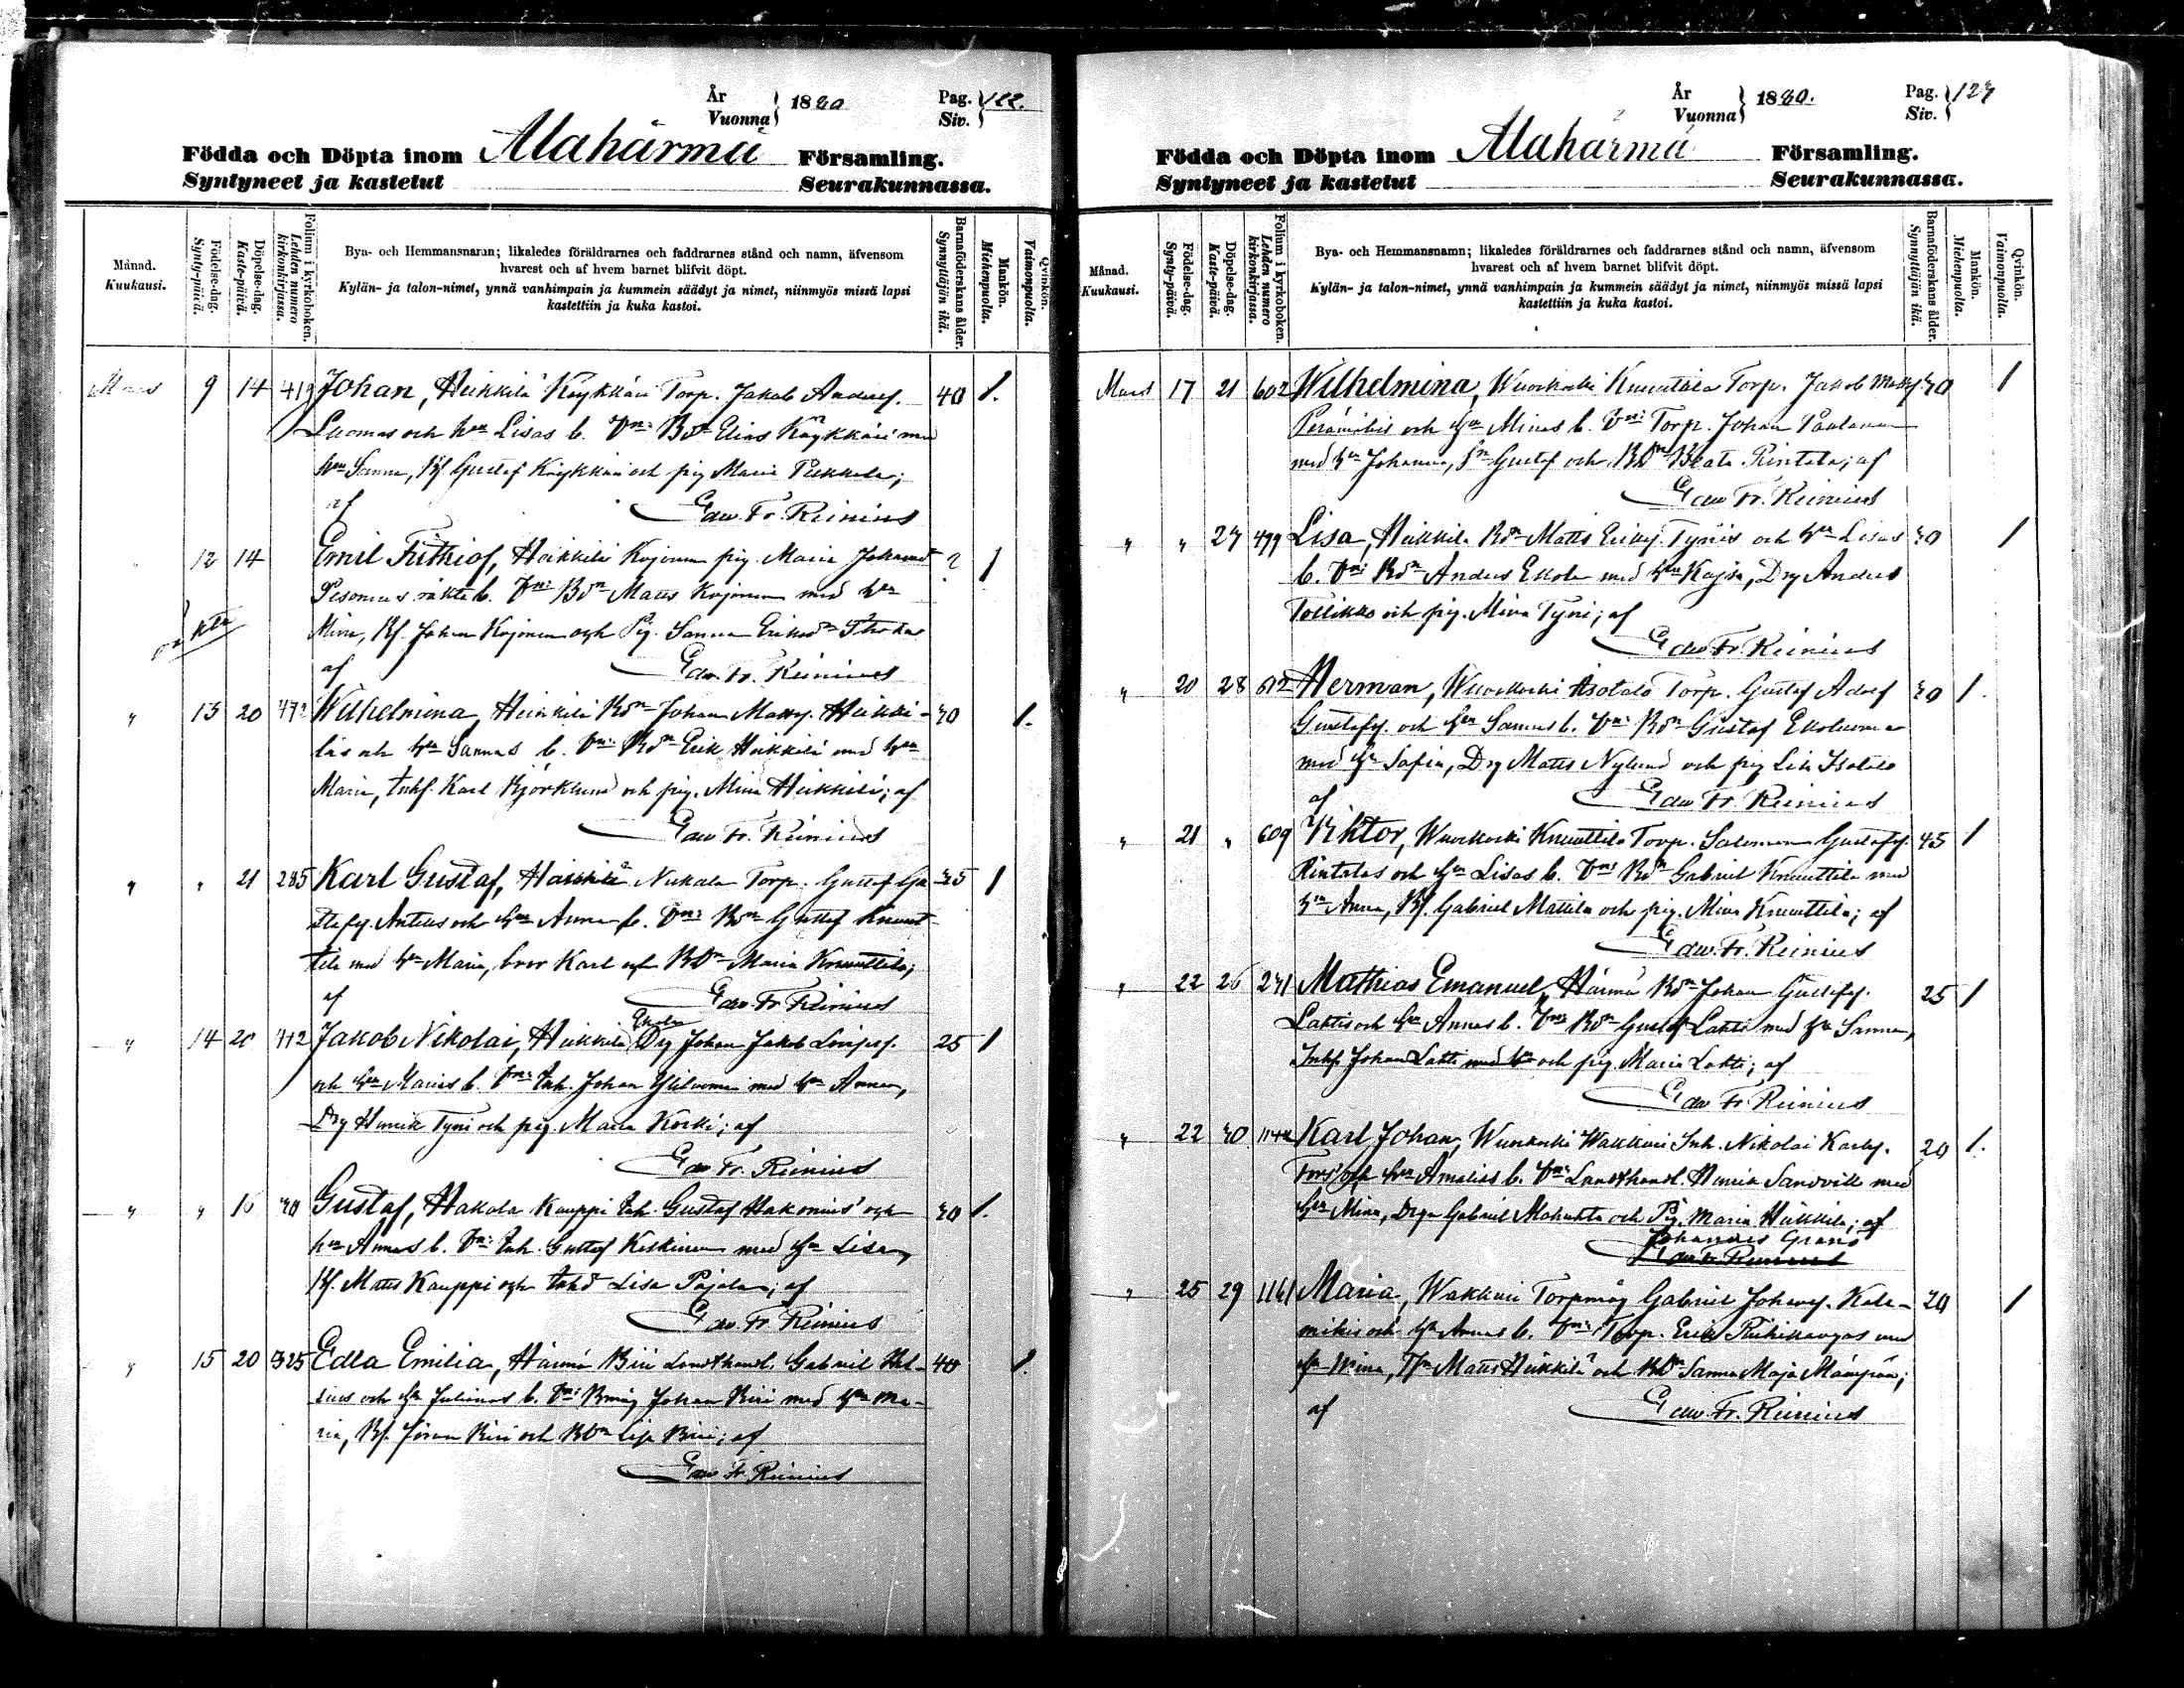 År
Vuonna 1880 Pag. 122.
Siv.
Födda och Döpta inom Alahärmä Församling.
Syntyneet ja kastetut Seurakunnassa.
Månad.
Kuukausi.
Födelse-dag.
Synty-päivä.
Döpelse-dag.
Kaste-päivä.
Folium i kyrkoboken.
Lehden numero kirkonkirjassa.
Bya- och Hemmansnamn; likaledes föräldrarnes och faddrarnes stånd och namn, äfvensom
hvarest och af hvem barnet blifvit döpt.
Kylän- ja talon-nimet, ynnä vanhimpain ja kummein säädyt ja nimet, niinmyös missä lapsi
kastettiin ja kuka kastoi.
Barnaföderskans ålder.
Synnyttäjän ikä.
Mankön.
Miehenpuolta.
Qvinkön.
Vaimonpuolta.
Mars 9 14 419 Johan, Heikkilä Köykkäri Torp. Jakob Andersf. 40 1.
Luomas och hu Lisas b. Vn: Bdn Elias Köykkäri med
hu Sanna, Bf Gustaf Köykkäri och pig Maria Pukkala;
af Edw. Fr. Reinius
12 14 Emil Frithiof, Heikkilä Kojonen pig. Maria Johansd ? 1
oäkta b. Vn: Bdn Matts Kojonen med hu
Mina, Bf. Johan Kojonen och Pig. Sanna Eriksdr
af Edw. Fr. Reinius
" 13 20 472 Wilhelmina, Heikkilä Bdn Johan Mattsf. Heikki- 30 1.
läs och hu Sannas b. Vn: Bdn Erik Heikkilä med hu
Maria, Inhf. Karl Björklund och pig. Mina Heikkilä; af
Edw Fr. Reinius
" " 21 285 Karl Gustaf, Heikkilä Nukala Torp. Gustaf Gu- 35 1
stafsf. Anttus och hu Annas b. Vn: Bdn Gustaf Knuut-
tila med hu Maria, bror Karl och Bdn Maria Knuuttila;
af Edw. Fr Reinius
" 14 20 412 Jakob Nikolai, Heikkilä Ekola Drg Johan Jakob 25 1
och hu Marias b. Vn: Inh. Johan Yliluoma med hu Anna,
Drg Henrik Tyni och pig. Maria Koski; af
Edw Fr. Reinius
" " 16 30 Gustaf, Hakola Kauppi Inh. Gustaf Hakonins och 30 1.
hu Annas b. Vn: Inh. Gustaf Keskinen med hu Lisa,
Bf. Matts Kauppi och Inhd Lisa Pajala; af
Edw. Fr Reinius
" 15 20 325 Edla Emilia, Härmä Biri Landthandl. Gabriel Hel- 40 1.
sius och hu Julianas b. Vn: Johan Biri med hu Ma-
ria, Bf. Biri och Bdn Biri; af
Edw Fr. Reinius
År
Vuonna 1880. Pag. 123
Siv.
Födda och Döpta inom Alahärmä Församling.
Syntyneet ja kastetut Seurakunnassa.
Månad.
Kuukausi.
Födelse-dag.
Synty-päivä.
Döpelse-dag.
Kaste-päivä.
Folium i kyrkoboken.
Lehden numero kirkonkirjassa.
Bya- och Hemmansnamn; likaledes föräldrarnes och faddrarnes stånd och namn, äfvensom
hvarest och af hvem barnet blifvit döpt.
Kylän- ja talon-nimet, ynnä vanhimpain ja kummein säädyt ja nimet, niinmyös missä lapsi
kastettiin ja kuka kastoi.
Barnaföderskans ålder.
Synnyttäjän ikä.
Mankön.
Miehenpuolta.
Qvinkön.
Vaimonpuolta.
Mars 17 21 602 Wilhelmina, Wuoskoski Knuuttila Torp. Jakob Mattsf 30 1
Perämäkis och hu Minas b. Vn: Torp. Johan
med hu Johanna, Gustaf och Bdn Beata Rintala; af
Edw Fr. Reinius
" " 27 499 Lisa, Heikkilä Bdn Matts Eriksf. Tynis och hu Lisas 30 1
b. Vn: Bdn Anders Ekola med hu Kajsa, Drg Anders
Tollikko och pig. Mina Tyni; af
Edw Fr. Reinius
" 20 28 612 Herman, Wuoskoski Isotalo Torp. Gustaf Adolf 30 1.
Gustafsf. och hu Sannas b. Vn: Bdn Gustaf Ekoluoma
med hu Sofia, Drg Matts Nylund och pig Lisa Isotalo
af Edw Fr. Reinius
" 21 " 609 Viktor, Wuoskoski Knuuttila Torp. Salomon Gustafsf. 45 1
Rintalas och hu Lisas b. Vn: Bdn Gabriel Knuuttila med
hu Anna, Bf. Gabriel Mattila och pig. Mina Knuuttila; af
Edw. Fr. Reinius
" 22 26 231 Mathias Emanuel, Härmä Bdn Johan Gustafsf. 25 1
Lahtis och hu Annas b. Vn: Bdn Gustaf Lahti med hu Sanna,
Inhf. Johan Lahti med hu och pig. Maria Lahti; af
Edw Fr Reinius
" 22 30 Karl Johan, Wuoskoski Wakkuri Inh. Nikolai Karlsf. 20 1.
Fors och hu Amalias b. Vn: Landthandl. Henrik Sandvik med
hu Mina, Drgn Gabriel och Pig. Maria Heikkilä; af
Johannes Granö
Edw Fr. Reinius
" 25 29 1161 Maria, Wakkuri Torpmåg Gabriel Johansf. Kata- 20 1
mäkis och hu Annas b. Vn: Torp. Erik Riihikangas med
hu Mina, Matts Heikkilä och Bdn Sanna Maja Mäenpää;
af Edw. Fr. Reinius